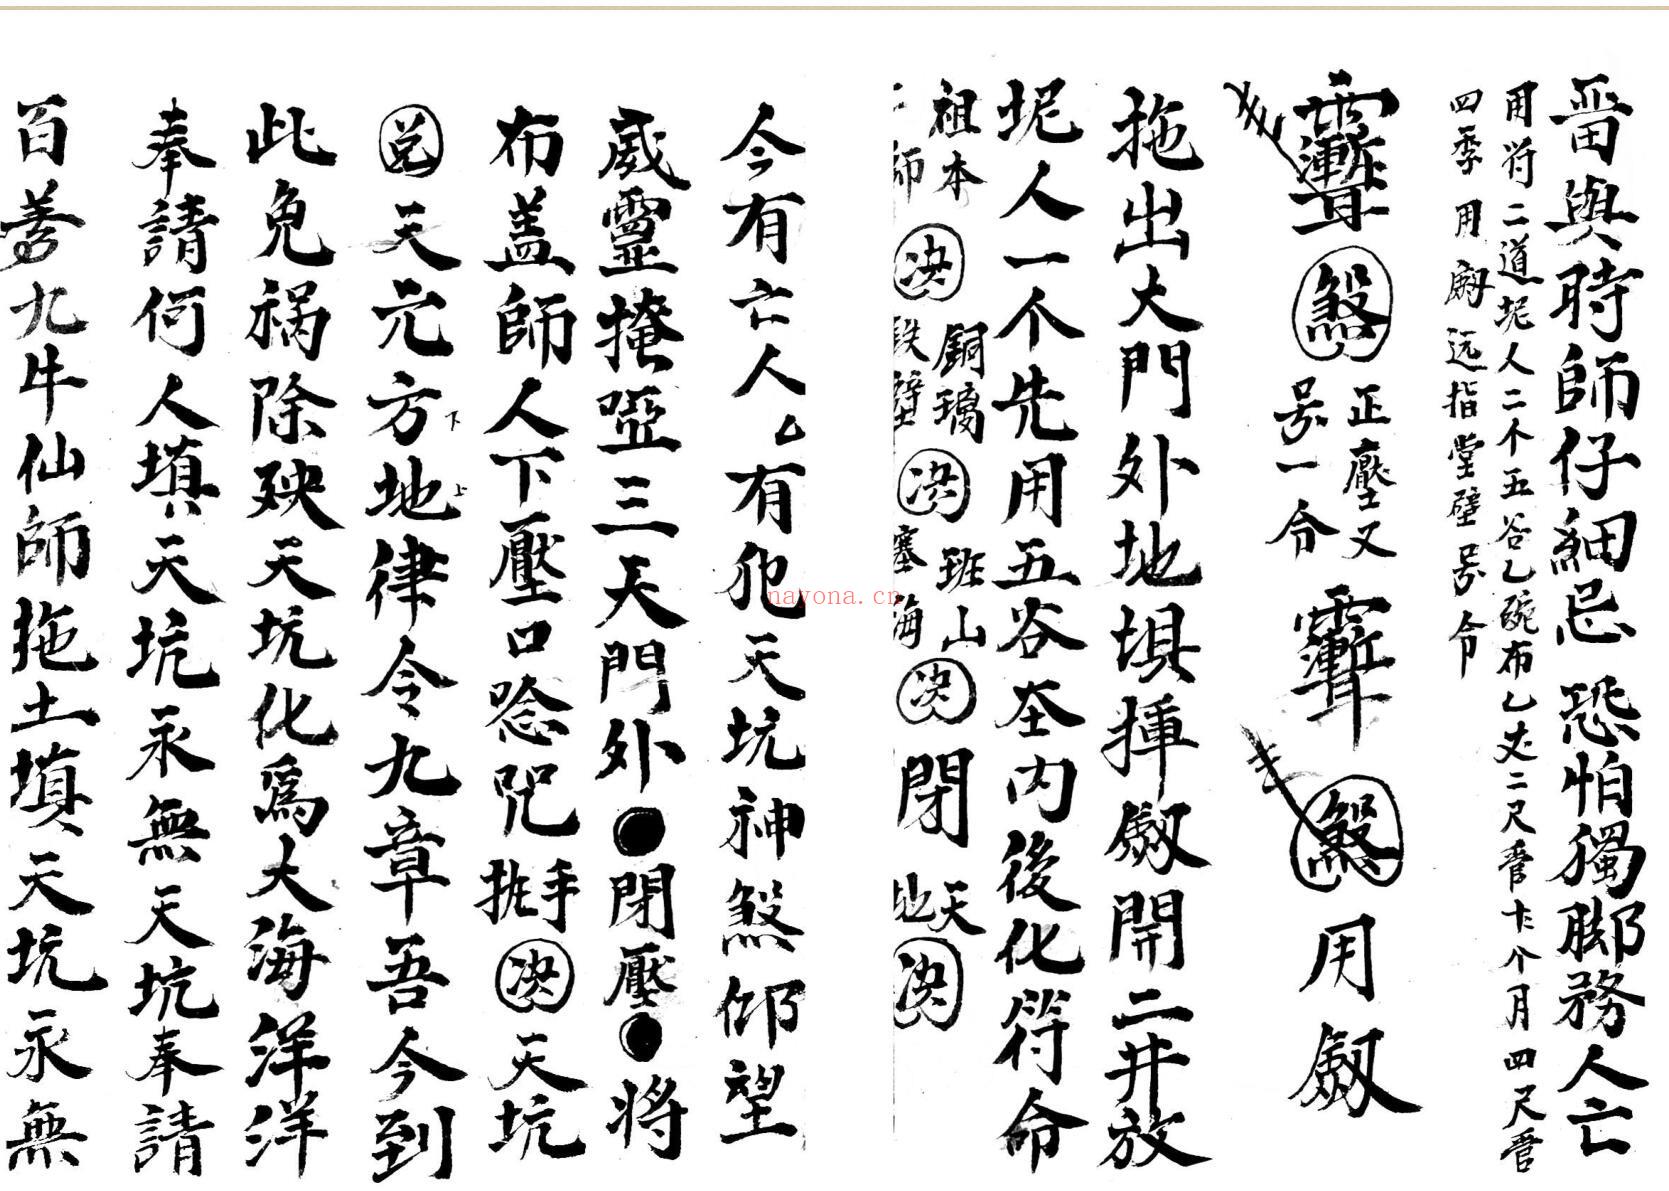 畨與時師仔細忌恐怕獨脚務人亡
用符二道坭人二个五谷乙碗布乙丈二尺管十个月四尺管
四季用劍远指堂壁号令
煞 正壓又号一令 煞 用劍
拖出大門外地埧揮劍開二井放
坭人一个先用五谷在内後化符命
祖本 師 决 銅璃 鉄壁 决 班山 塞海 决 閉 天地 决
今有亡人厶有犯天坑神煞仰望
威靈掩啞三天門外●閉壓●將
布盖師人下壓口唸咒手挋决天坑
兌天元方地律令九章吾今到
下上
此免禍除殃天坑化爲大海洋洋
奉請何人填天坑永無天坑奉請
百善九牛仙師拖土填天坑永無
nayona.cn